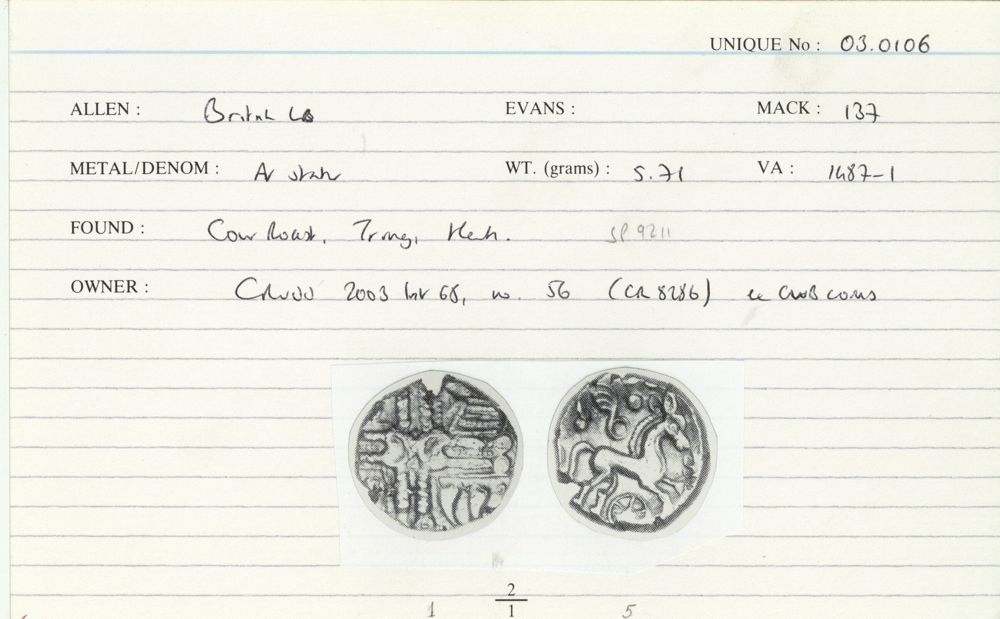 UNIQUE No : 03.0106
ALLEN : British LB EVANS : MACK : 137
METAL/DENOM : AV stater WT. (grams) : 5.71 VA : 1487-1
FOUND : Cow Roast, Tring, Herts. SP 9211
OWNER : 2003 list 68, no. 56 (CR 8286)
2
1 1 5